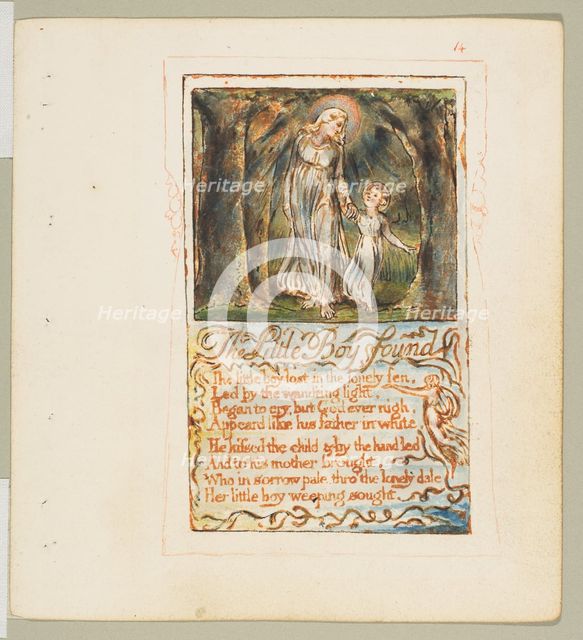 14
The Little Boy found
The little boy lost in the lonely fen,
Led by the wand'ring light,
Began to cry, but God ever nigh,
Appeard like his father in white.
He kissed the child & by the hand led
And to his mother brought,
Who in sorrow pale, thro' the lonely dale
Her little boy weeping sought.
Heritage Heritage Heritage
Heritage Heritage Heritage
Heritage Heritage Heritage
Heritage Heritage Heritage